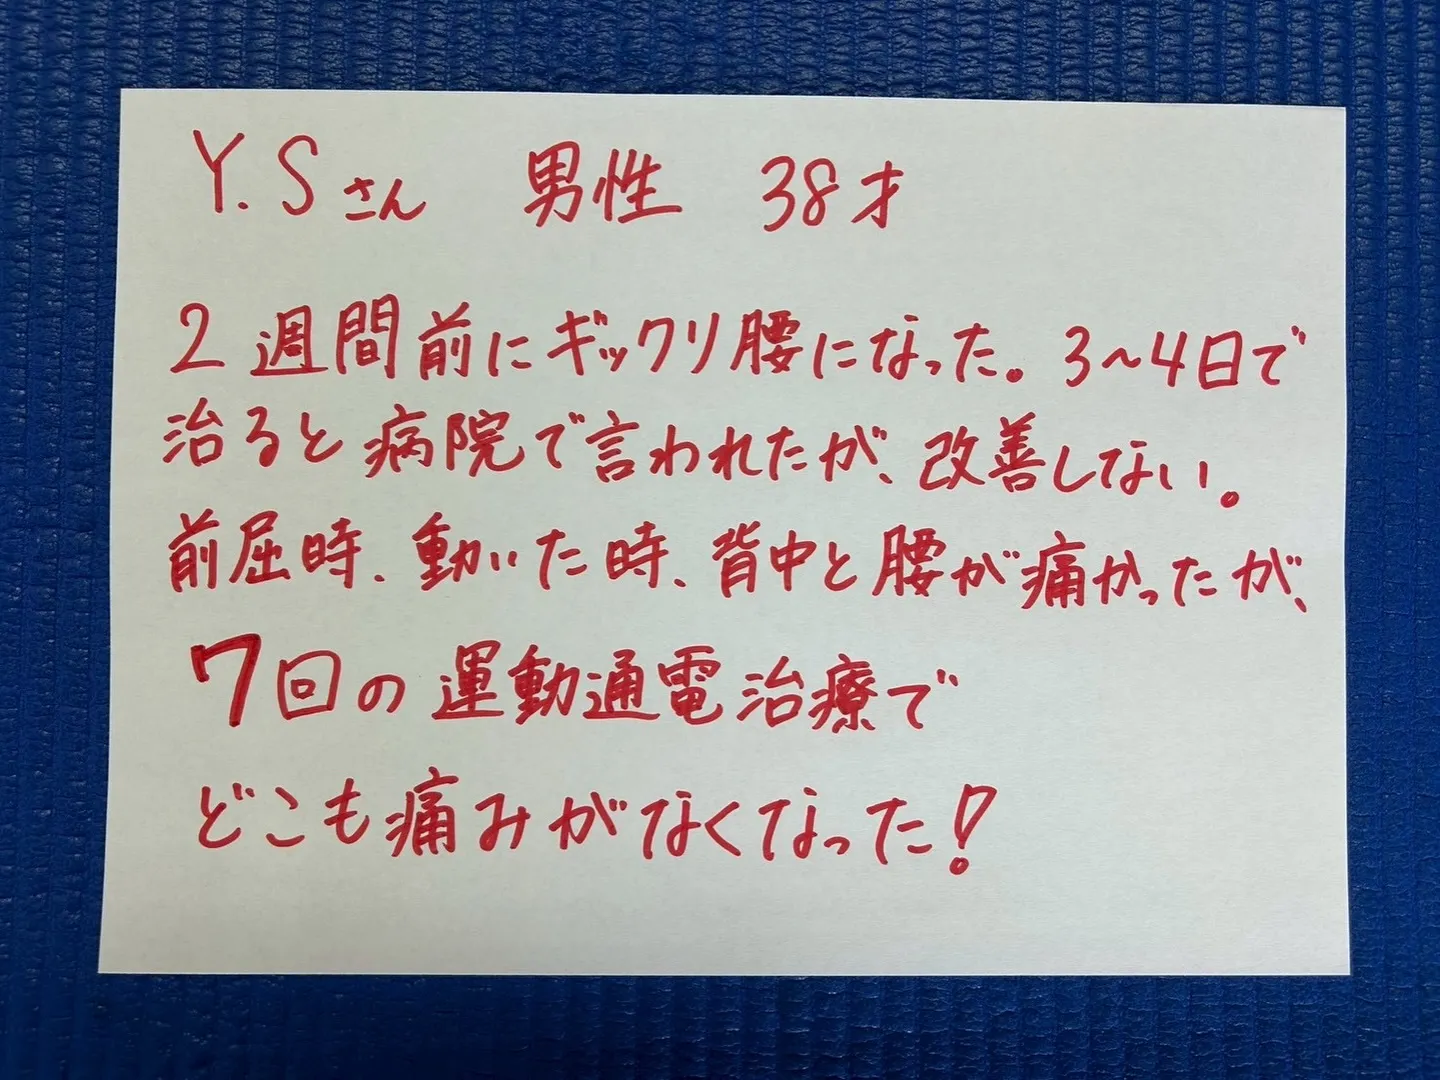 Y.Sさん 男性 38才
2週間前にギックリ腰になった。3〜4日で
治ると病院で言われたが、改善しない。
前屈時、動いた時、背中と腰が痛かったが、
7回の運動通電治療で
どこも痛みがなくなった!